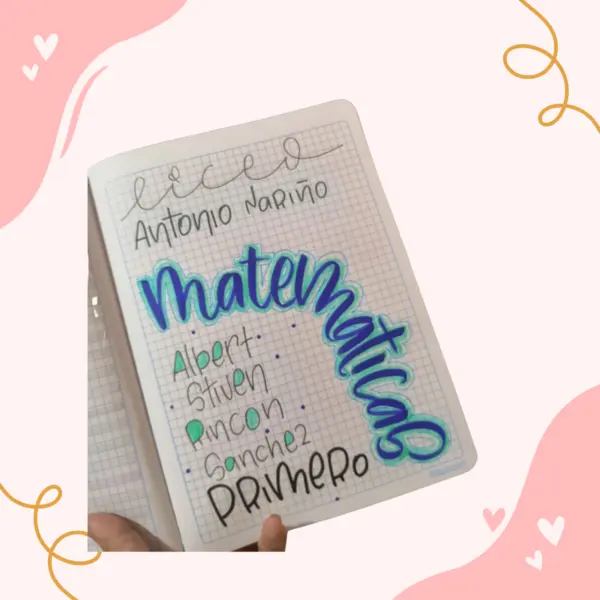 liceo
Antonio Nariño
matemáticas
Albert
Stiven
Rincon
Sanchez
Primero